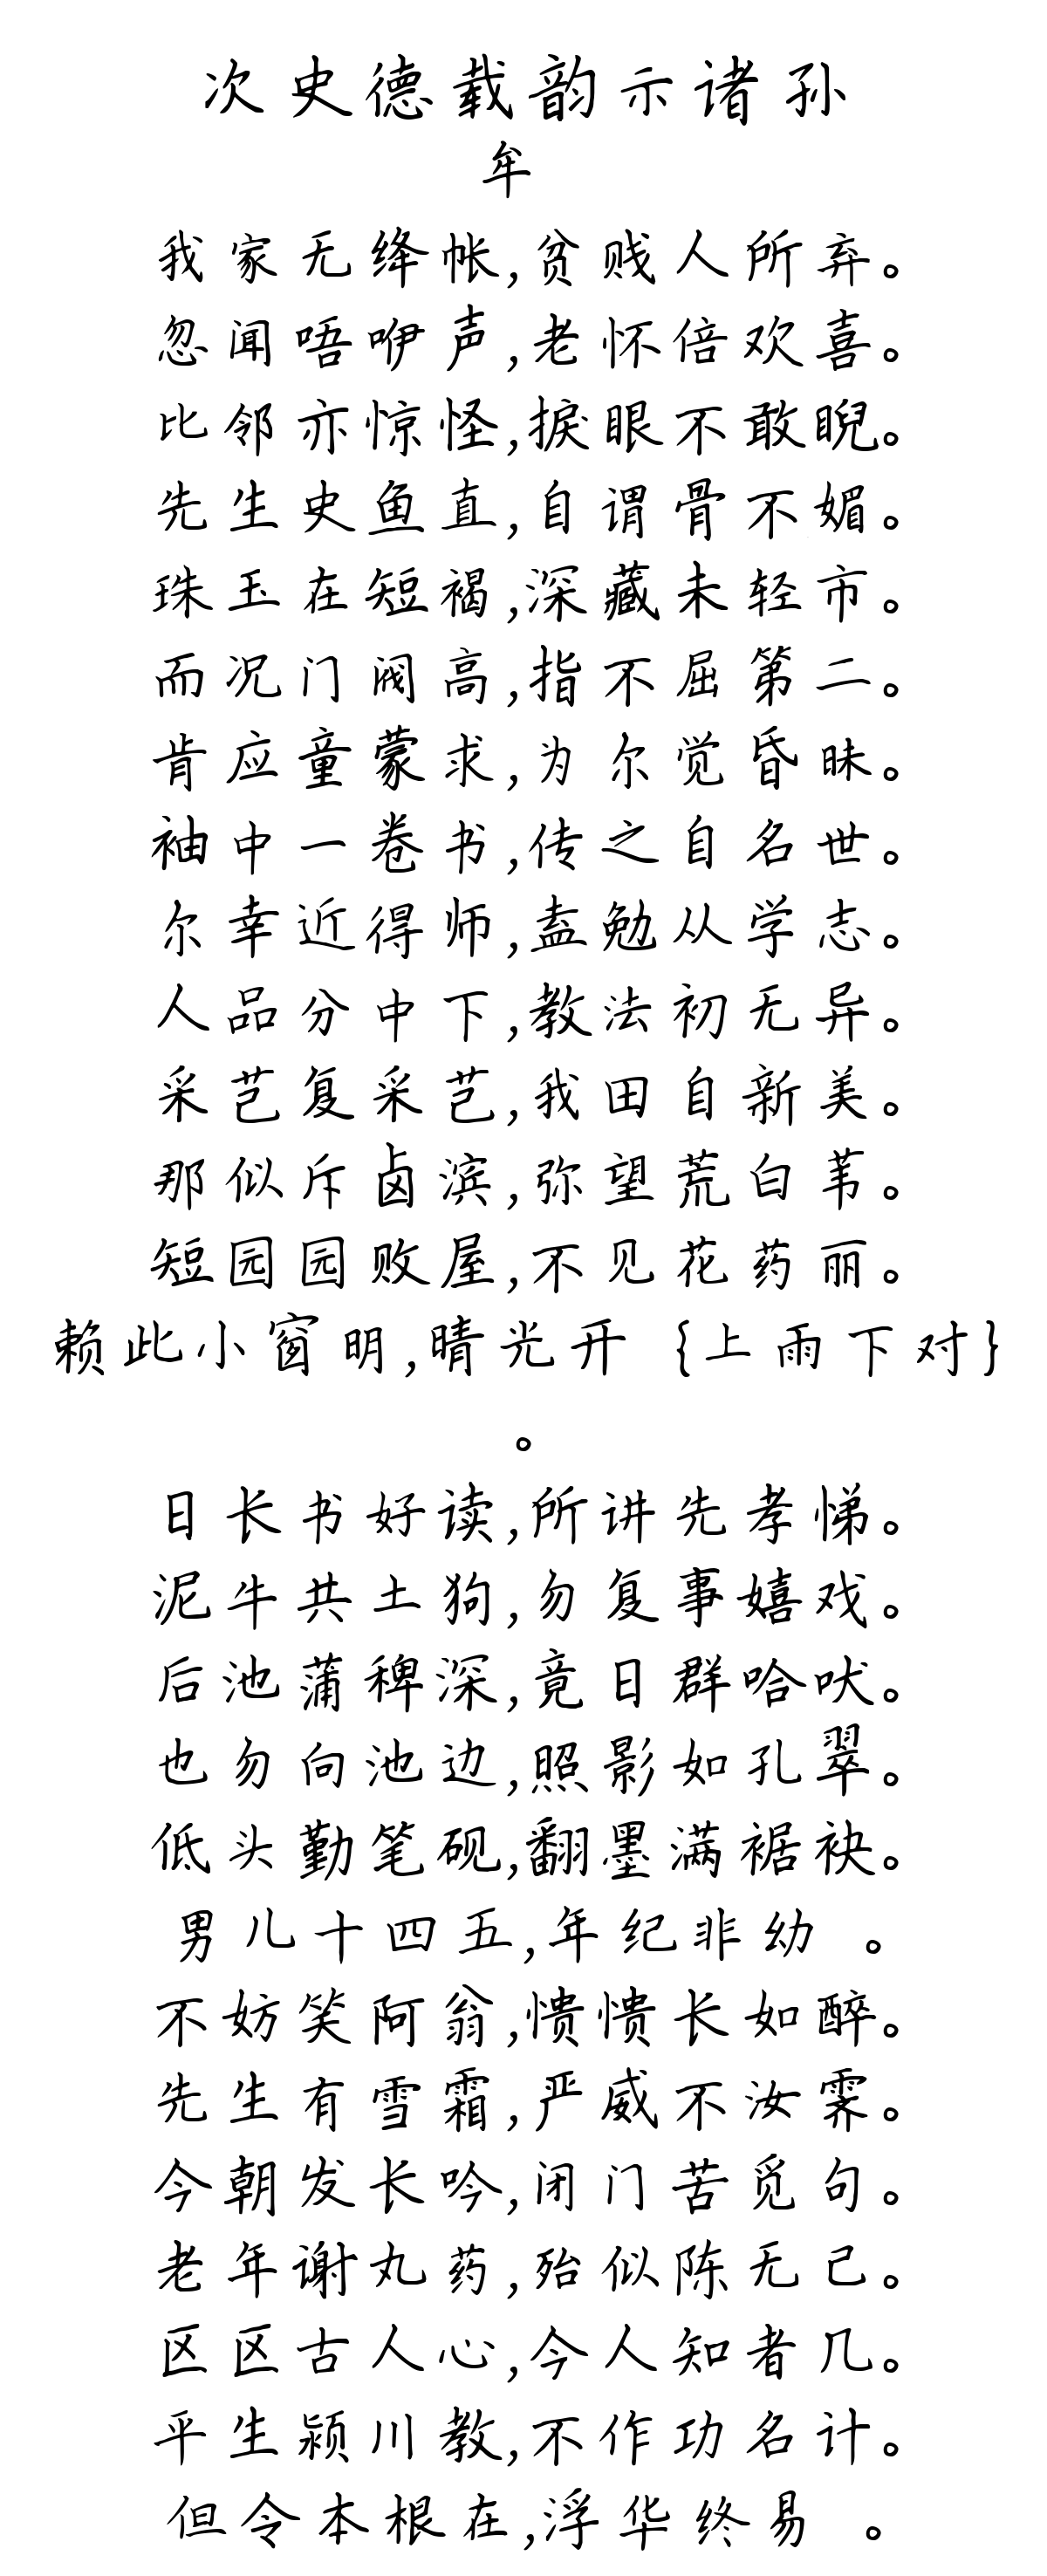 次史德载韵示诸孙
牟
我家无绛帐,贫贱人所弃。
忽闻唔咿声,老怀倍欢喜。
比邻亦惊怪,捩眼不敢睨。
先生史鱼直,自谓骨不媚。
珠玉在短褐,深藏未轻市。
而况门阀高,指不屈第二。
肯应童蒙求,为尔觉昏昧。
袖中一卷书,传之自名世。
尔幸近得师,盍勉从学志。
人品分中下,教法初无异。
采芑复采芑,我田自新美。
那似斥卤滨,弥望荒白苇。
短园园败屋,不见花药丽。
赖此小窗明,晴光开 {上雨下对}
。
日长书好读,所讲先孝悌。
泥牛共土狗,勿复事嬉戏。
后池蒲稗深,竟日群哈吠。
也勿向池边,照影如孔翠。
低头勤笔砚,翻墨满裾袂。
男儿十四五,年纪非幼 。
不妨笑阿翁,愦愦长如醉。
先生有雪霜,严威不汝霁。
今朝发长吟,闭门苦觅句。
老年谢丸药,殆似陈无己。
区区古人心,今人知者几。
平生颍川教,不作功名计。
但令本根在,浮华终易 。